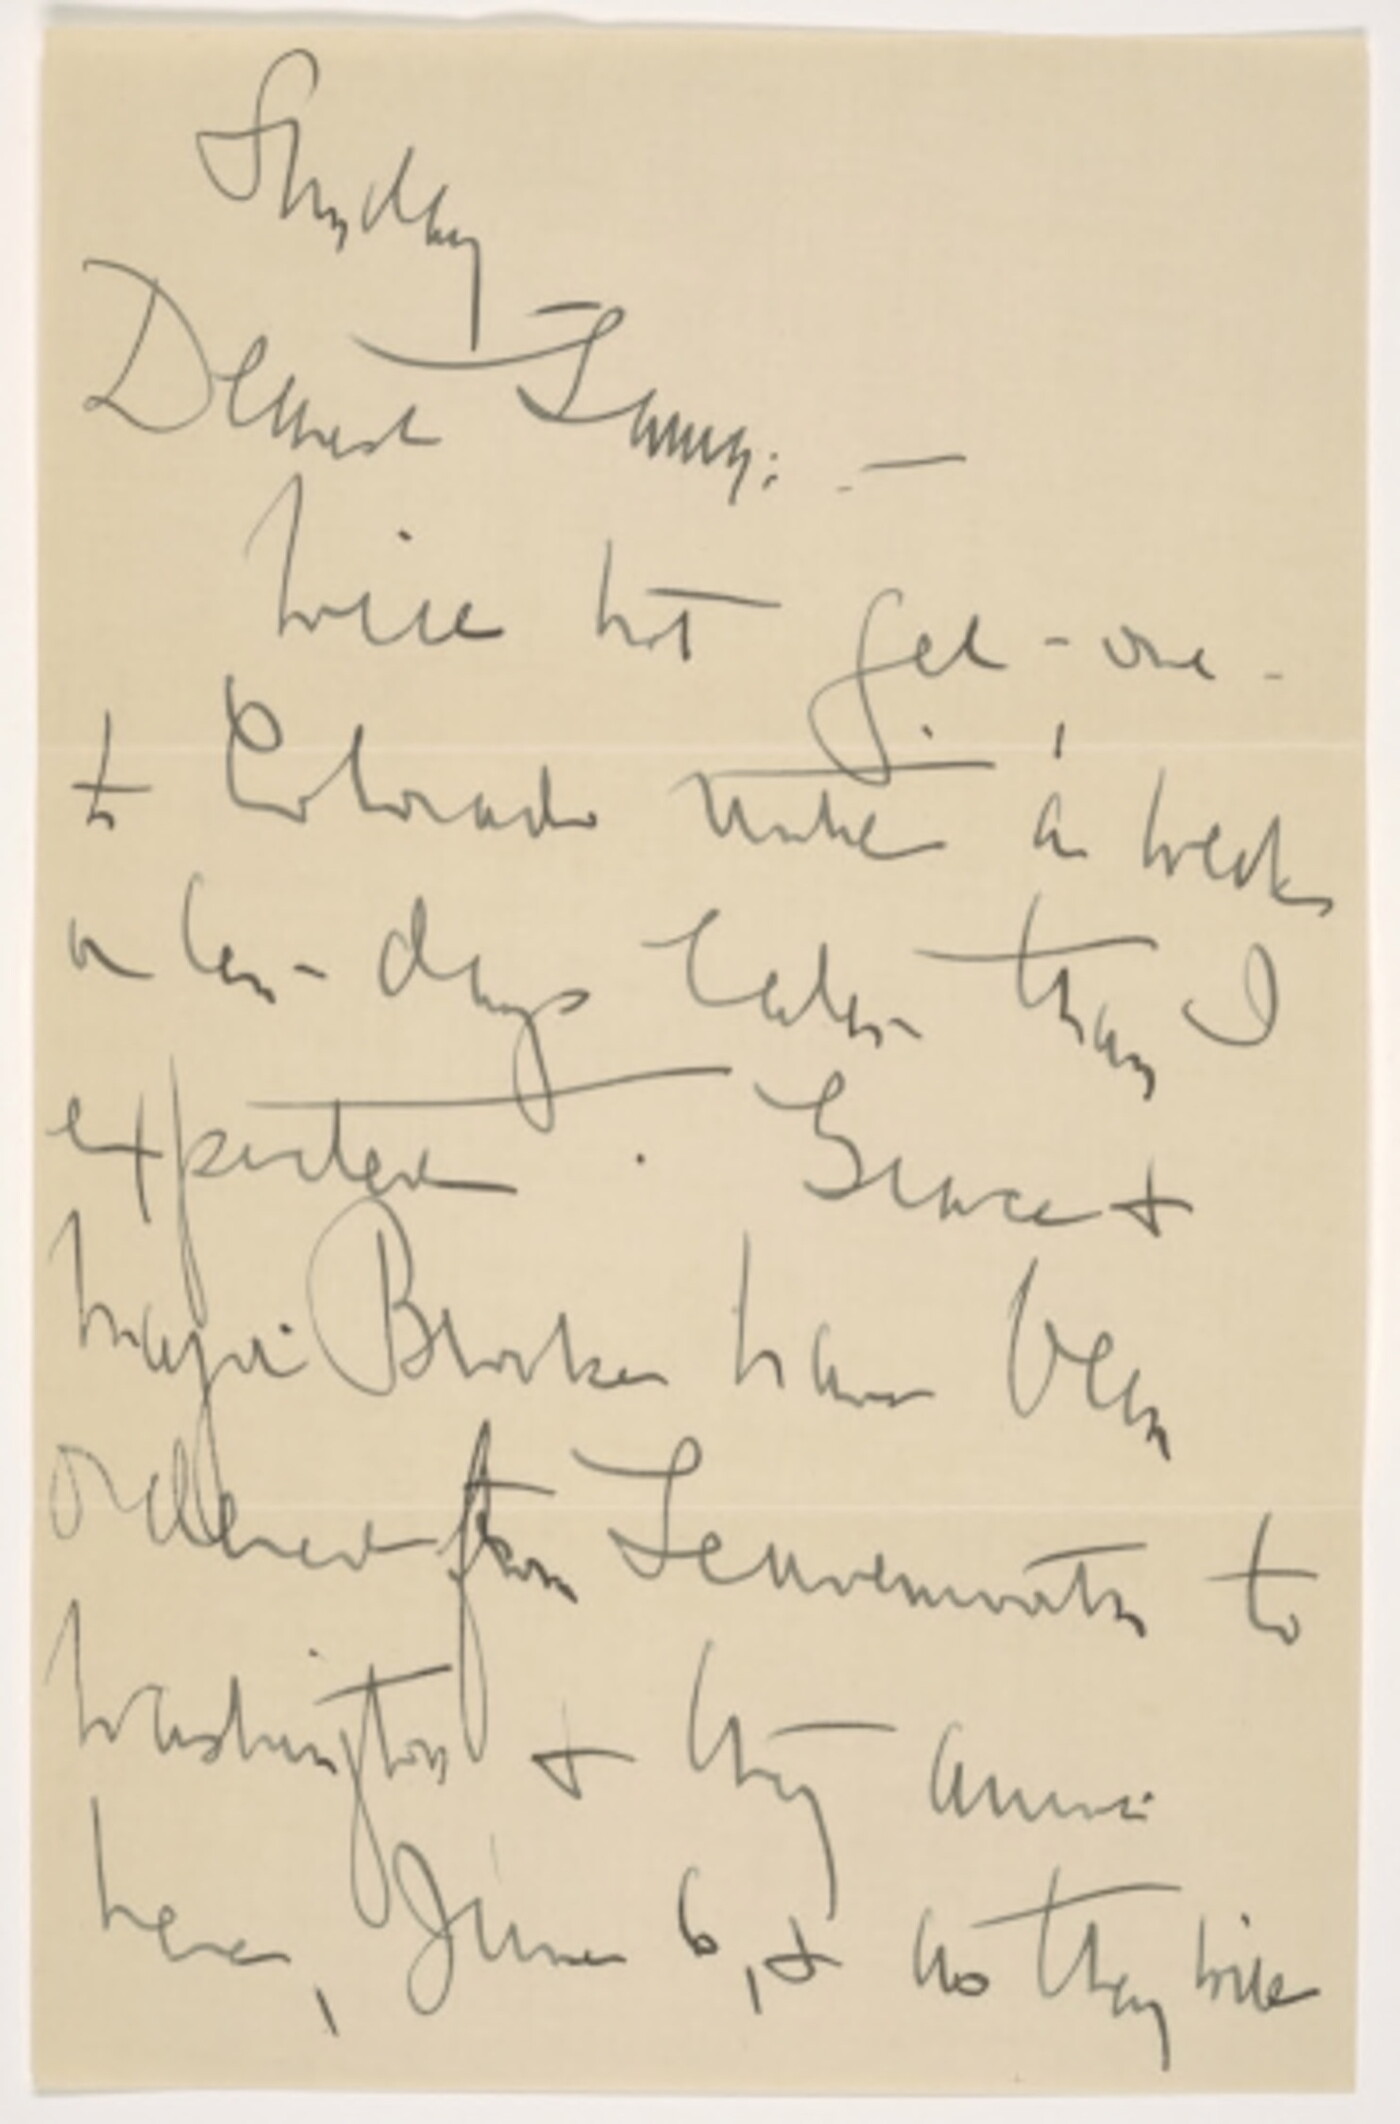 Sunday
Dearest Sunny: —
Will not get - one -
to Colorado until a week
or ten - days later than I
expected. Grace &
Major Brooke have been
ordered from Leavenworth to
Washington & they arrive
here, June 6, & as they will